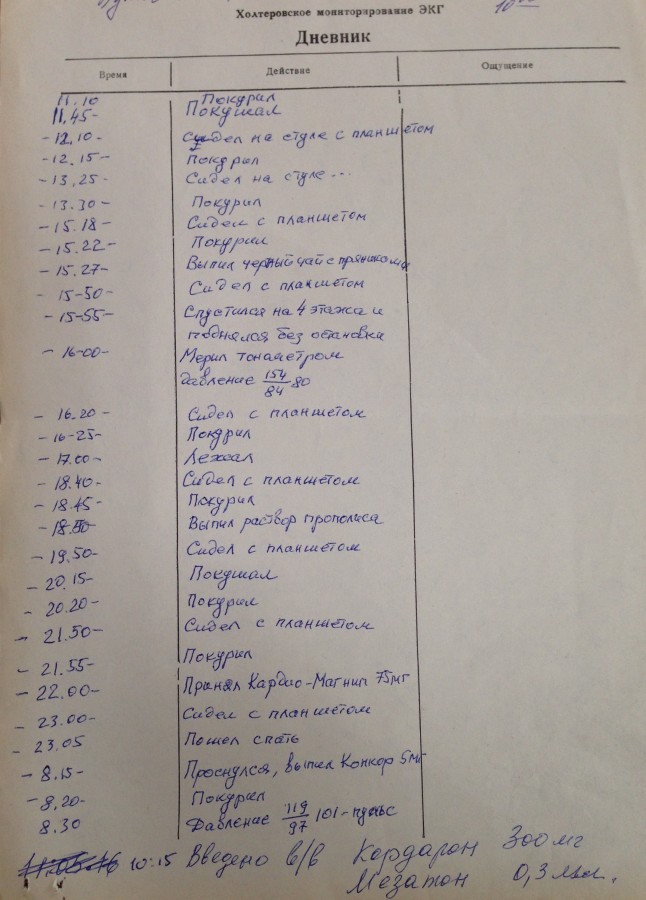 Холтеровское мониторирование ЭКГ 10⁰⁰
Дневник
Время Действие Ощущение
11.10 Покурил
11.45- Покушал
-12.10- Сидел на стуле с планшетом
-12.15- Покурил
-13,25- Сидел на стуле...
-13.30- Покурил
-15.18- Сидел с планшетом
-15.22- Покурил
-15.27- Выпил черный чай с пряниками
-15-50- Сидел с планшетом
-15-55- Спустился на 4 этажа и
поднялся без остановки
-16-00- Мерил тонометром
давление 154/84 80
-16.20- Сидел с планшетом
-16-25- Покурил
-17.00- Лежал
-18.40- Сидел с планшетом
-18.45- Покурил
-18.50- Выпил раствор прополиса
-19.50- Сидел с планшетом
-20.15- Покушал
-20.20- Покурил
-21.50- Сидел с планшетом
-21.55- Покурил
-22.00- Принял Кардио-Магнил 75мг
-23.00- Сидел с планшетом
-23.05 Пошел спать
-8.15- Проснулся, выпил Конкор 5мг
-8.20- Покурил
8.30 Давление 119/97 101-пульс
11.05.16 10:15 Введено в/в Кордарон 300 мг
Мезатон 0,3 мл.